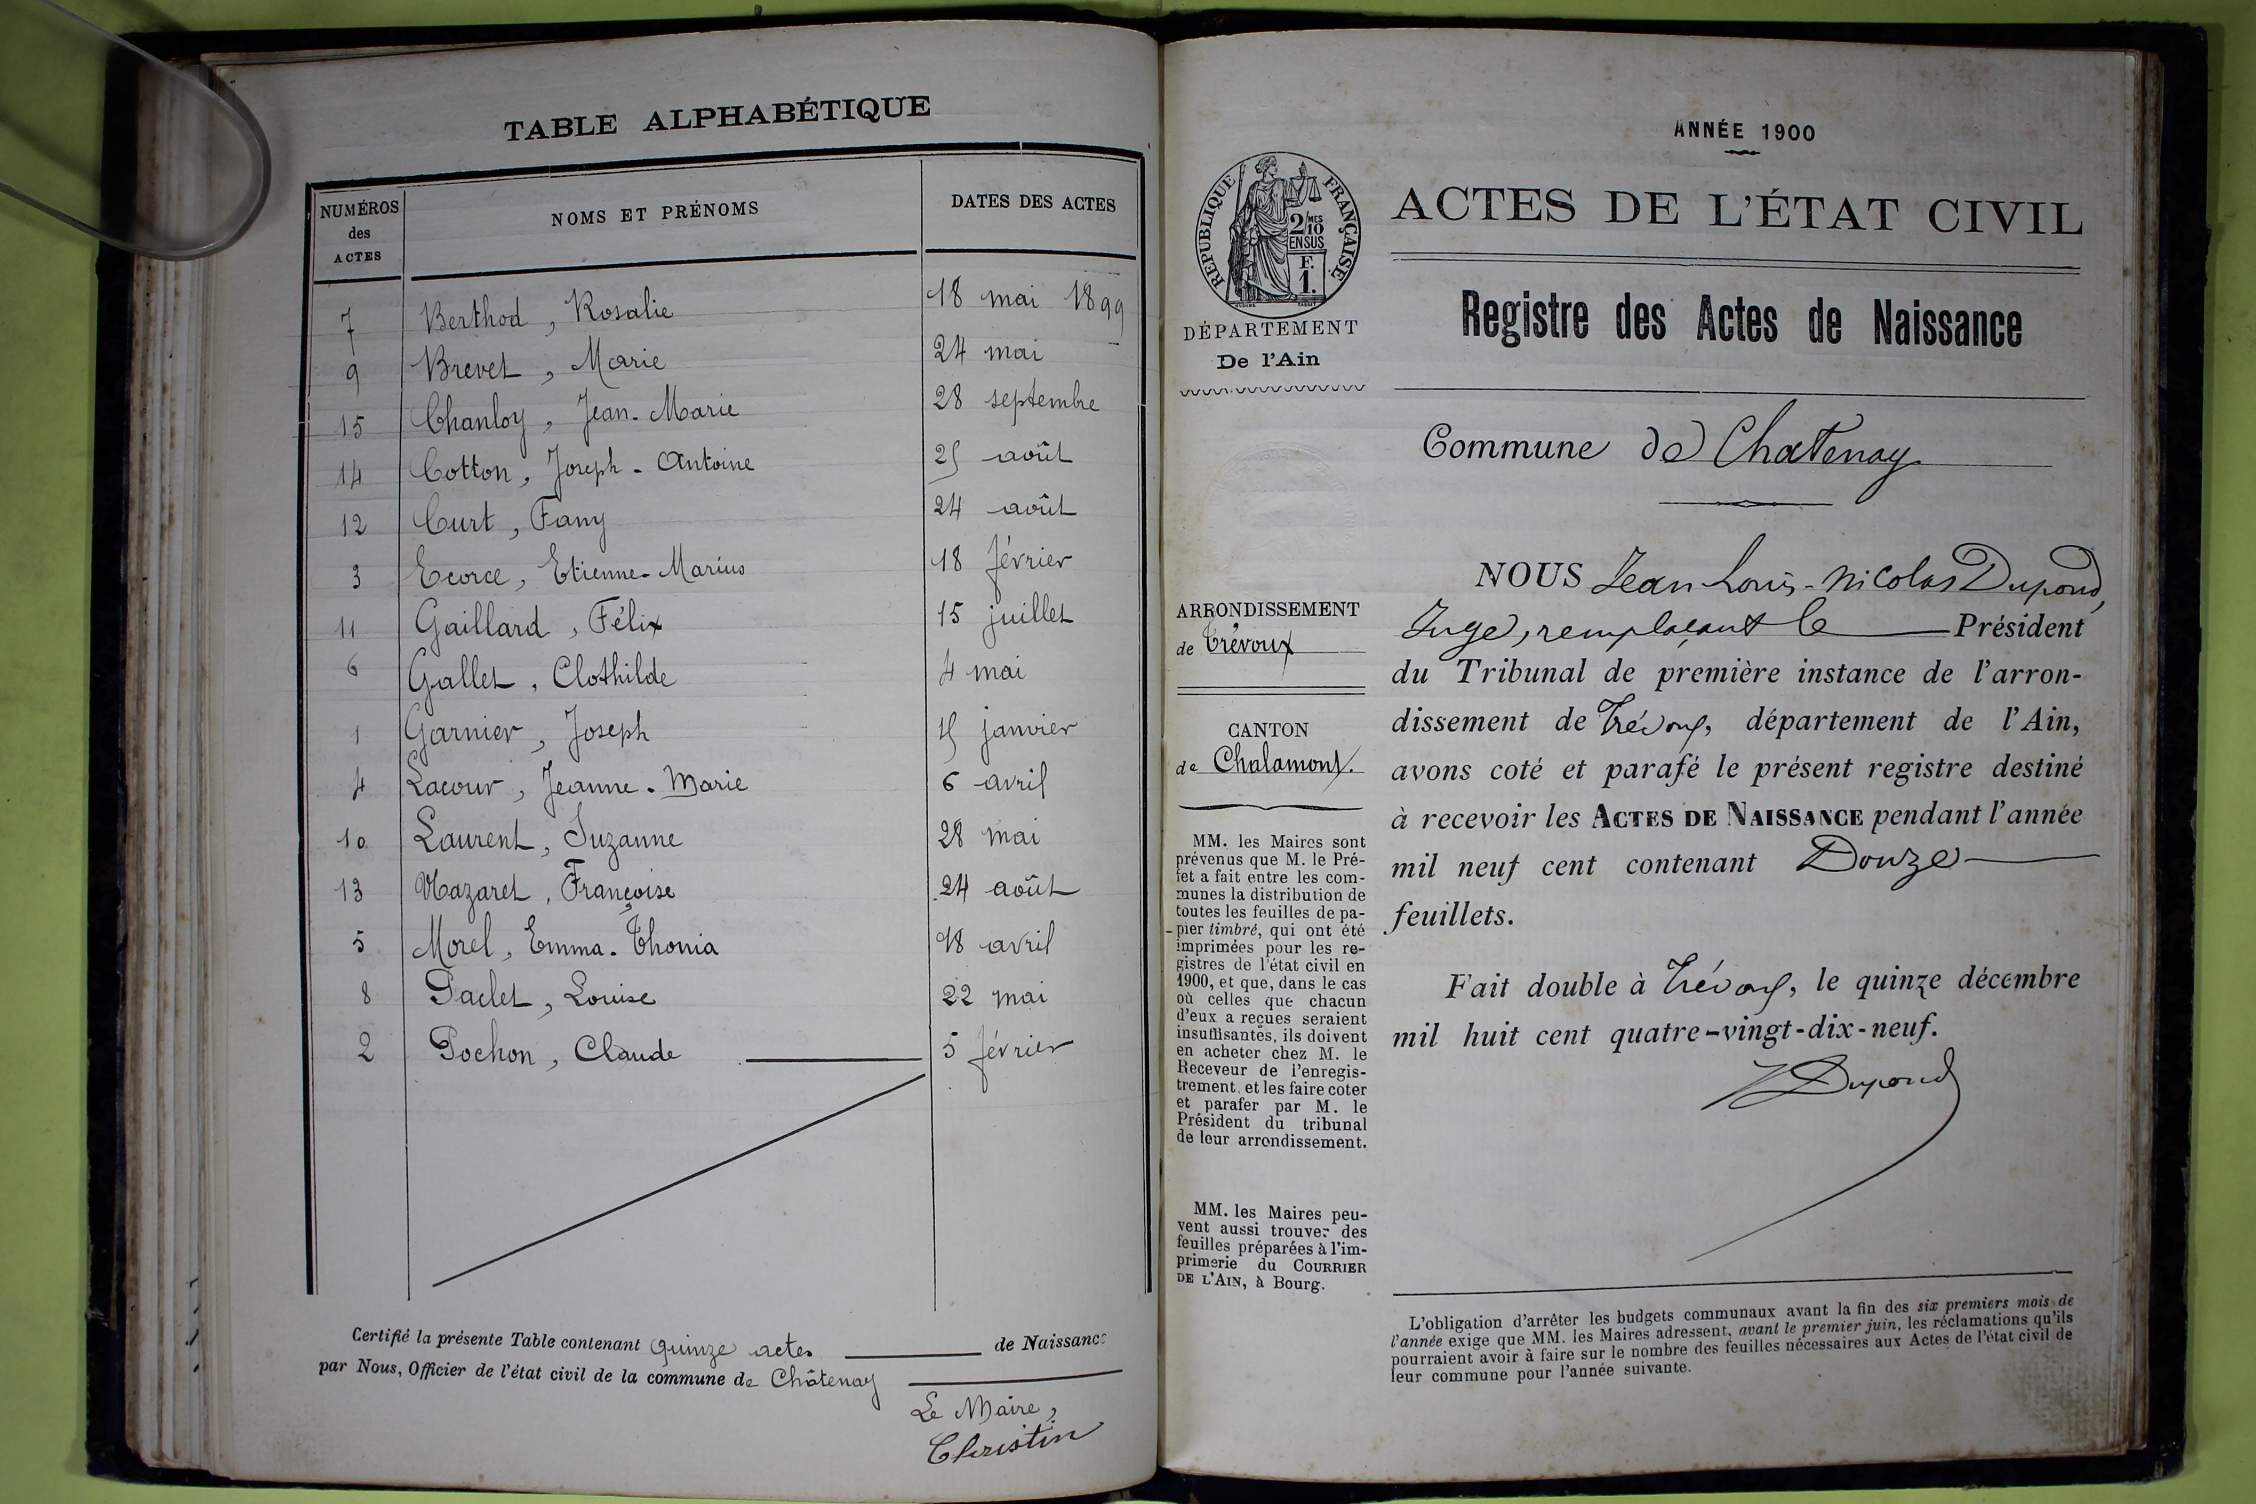 TABLE ALPHABÉTIQUE
NUMÉROS des ACTES NOMS ET PRÉNOMS DATES DES ACTES
7 Berthod, Rosalie 18 mai 1899
9 Brevet, Marie 24 mai
15 Chanloy, Jean-Marie 28 septembre
14 Cotton, Joseph-Antoine 25 août
12 Curt, Fany 24 août
3 Ecorce, Etienne-Marius 18 février
11 Gaillard, Félix 15 juillet
6 Gallet, Clothilde 4 mai
1 Garnier, Joseph 15 janvier
4 Lacour, Jeanne-Marie 6 avril
10 Laurent, Suzanne 28 mai
13 Mazaret, Françoise 24 août
5 Morel, Emma-Thonia 18 avril
8 Paclet, Louise 22 mai
2 Pochon, Claude 5 février
Certifié la présente Table contenant quinze actes de Naissance
par Nous, Officier de l'état civil de la commune de Châtenay
Le Maire,
Christin
ANNÉE 1900
RÉPUBLIQUE FRANÇAISE
2/10 MES
EN SUS
F.
1.
DÉPARTEMENT
De l'Ain
ACTES DE L'ÉTAT CIVIL
Registre des Actes de Naissance
Commune de Chatenay
ARRONDISSEMENT
de Trévoux
CANTON
de Chalamont.
MM. les Maires sont
prévenus que M. le Pré-
fet a fait entre les com-
munes la distribution de
toutes les feuilles de pa-
pier timbré, qui ont été
imprimées pour les re-
gistres de l'état civil en
1900, et que, dans le cas
où celles que chacun
d'eux a reçues seraient
insuffisantes, ils doivent
en acheter chez M. le
Receveur de l'enregis-
trement, et les faire coter
et parafer par M. le
Président du tribunal
de leur arrondissement.
MM. les Maires peu-
vent aussi trouver des
feuilles préparées à l'im-
primerie du COURRIER
DE L'AIN, à Bourg.
NOUS Jean Louis-Nicolas Dupond,
Juge, remplaçant le Président
du Tribunal de première instance de l'arron-
dissement de Trévoux, département de l'Ain,
avons coté et parafé le présent registre destiné
à recevoir les ACTES DE NAISSANCE pendant l'année
mil neuf cent contenant Douze
feuillets.
Fait double à Trévoux, le quinze décembre
mil huit cent quatre-vingt-dix-neuf.
Dupond
L'obligation d'arrêter les budgets communaux avant la fin des six premiers mois de
l'année exige que MM. les Maires adressent, avant le premier juin, les réclamations qu'ils
pourraient avoir à faire sur le nombre des feuilles nécessaires aux Actes de l'état civil de
leur commune pour l'année suivante.